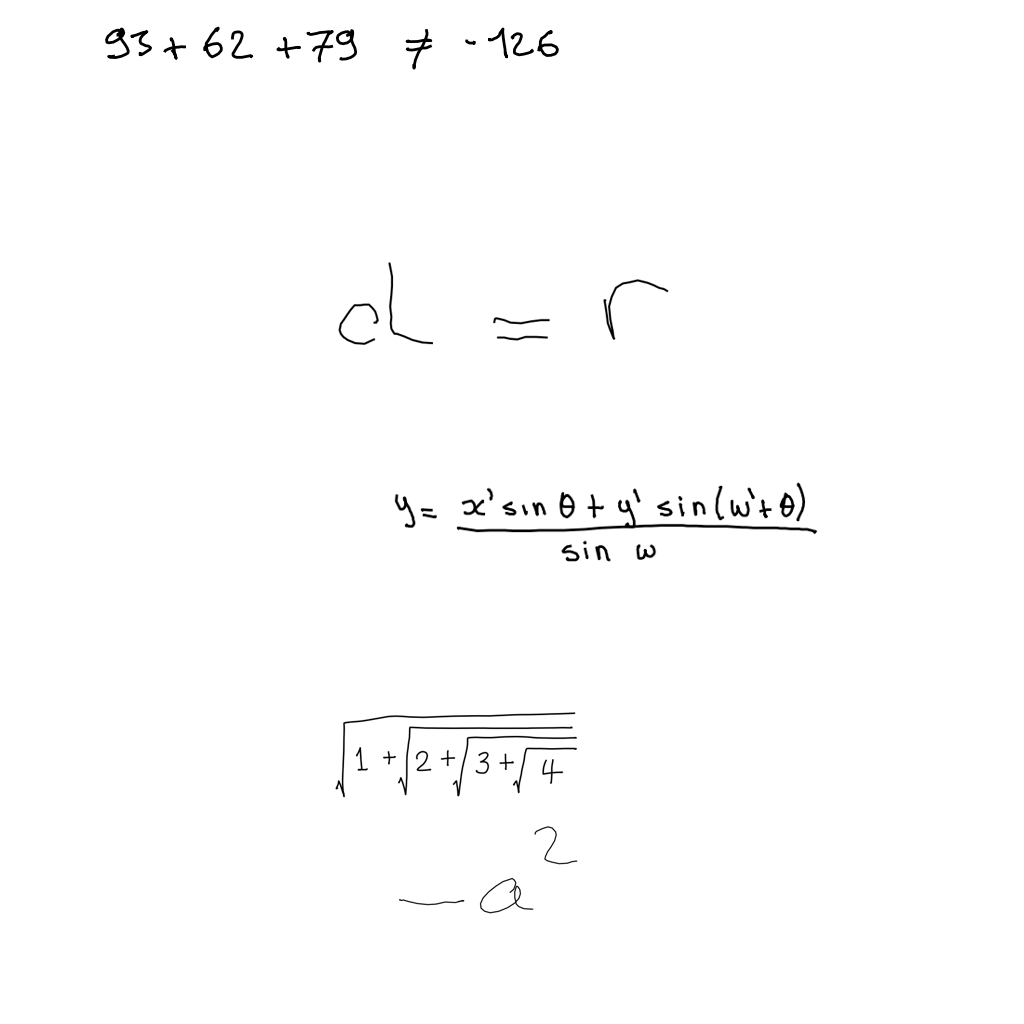 93 + 62 + 79 ≠ -126
d = r
y = \frac{x' sin θ + y' sin(ω' + θ)}{sin ω}
\sqrt{1 + \sqrt{2 + \sqrt{3 + \sqrt{4}}}}
-a^2